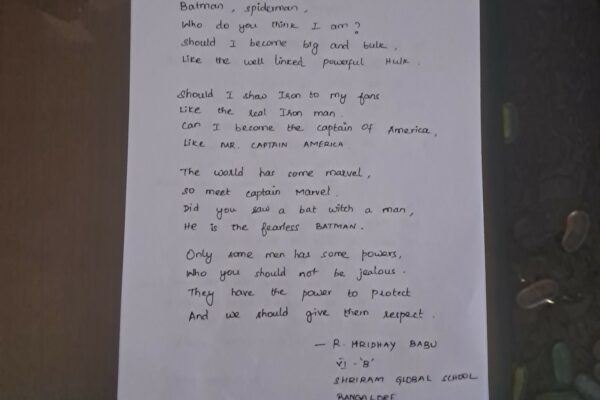 Batman, spiderman,
Who do you think I am?
Should I become big and bulk,
Like the well linked powerful Hulk.
Should I show Iron to my fans
Like the real Iron man.
Can I become the captain of America,
Like MR. CAPTAIN AMERICA
The world has some marvel,
so meet captain Marvel.
Did you saw a bat witch a man,
He is the fearless BATMAN.
Only some men has some powers,
Who you should not be jealous.
They have the power to protect
And we should give them respect.
— R. MRIDHAY BABU
VI - 'B'
SHRIRAM GLOBAL SCHOOL
BANGALORE